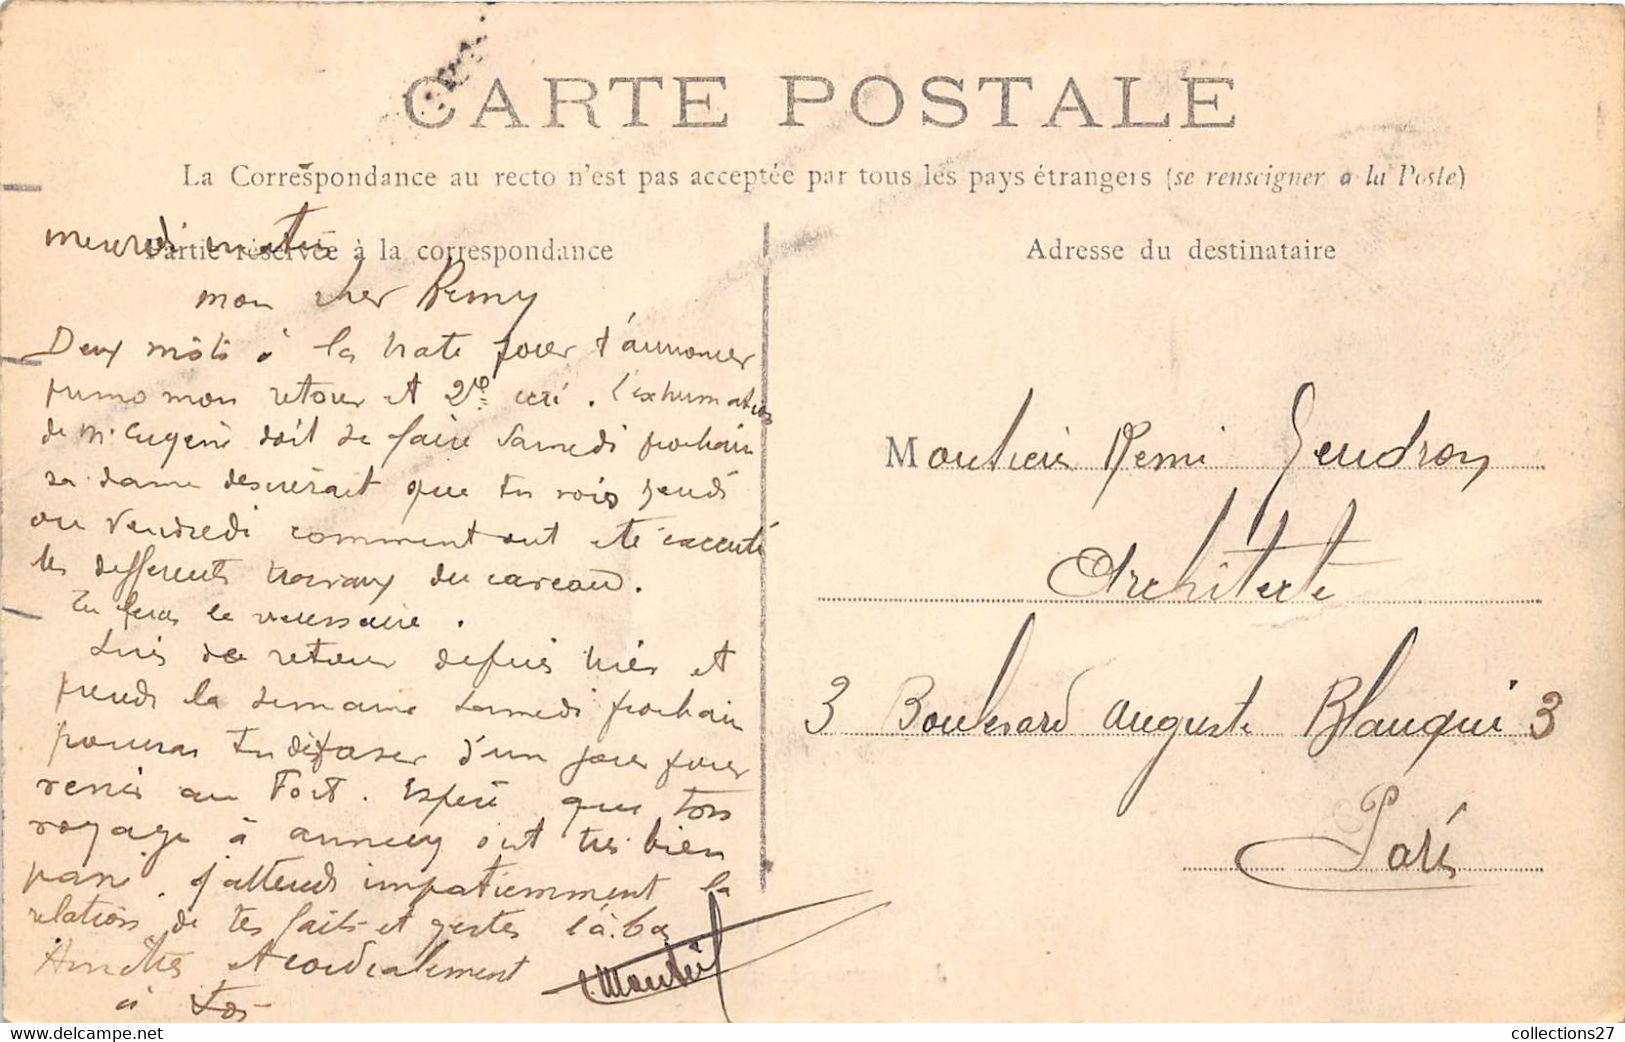 CARTE POSTALE
La Correspondance au recto n'est pas acceptée par tous les pays étrangers (se renseigner à la Poste)
Partie réservée à la correspondance
Adresse du destinataire
mercredi matin
mon cher Remy
Deux mots à la hate pour t'annoncer
primo mon retour et 2º ceci. l'exhumation
de Mr Eugène doit se faire Samedi prochain
sa dame desirerait que tu vois jeudi
ou Vendredi comment ont été éxecuté
les differents travaux du caveau.
Tu feras le necessaire.
Suis de retour depuis hier et
prends la semaine Samedi prochain
pourras tu disposer d'un jour pour
venir au Fort. Espère que ton
voyage à annecy s'est très bien
passé. J'attends impatiemment la
relation de tes faits et gestes là-bas
Amitiés et cordialement
à toi
Monsieur Remi Gendron
Architecte
3 Boulevard Auguste Blanqui 3
Paris
collections27